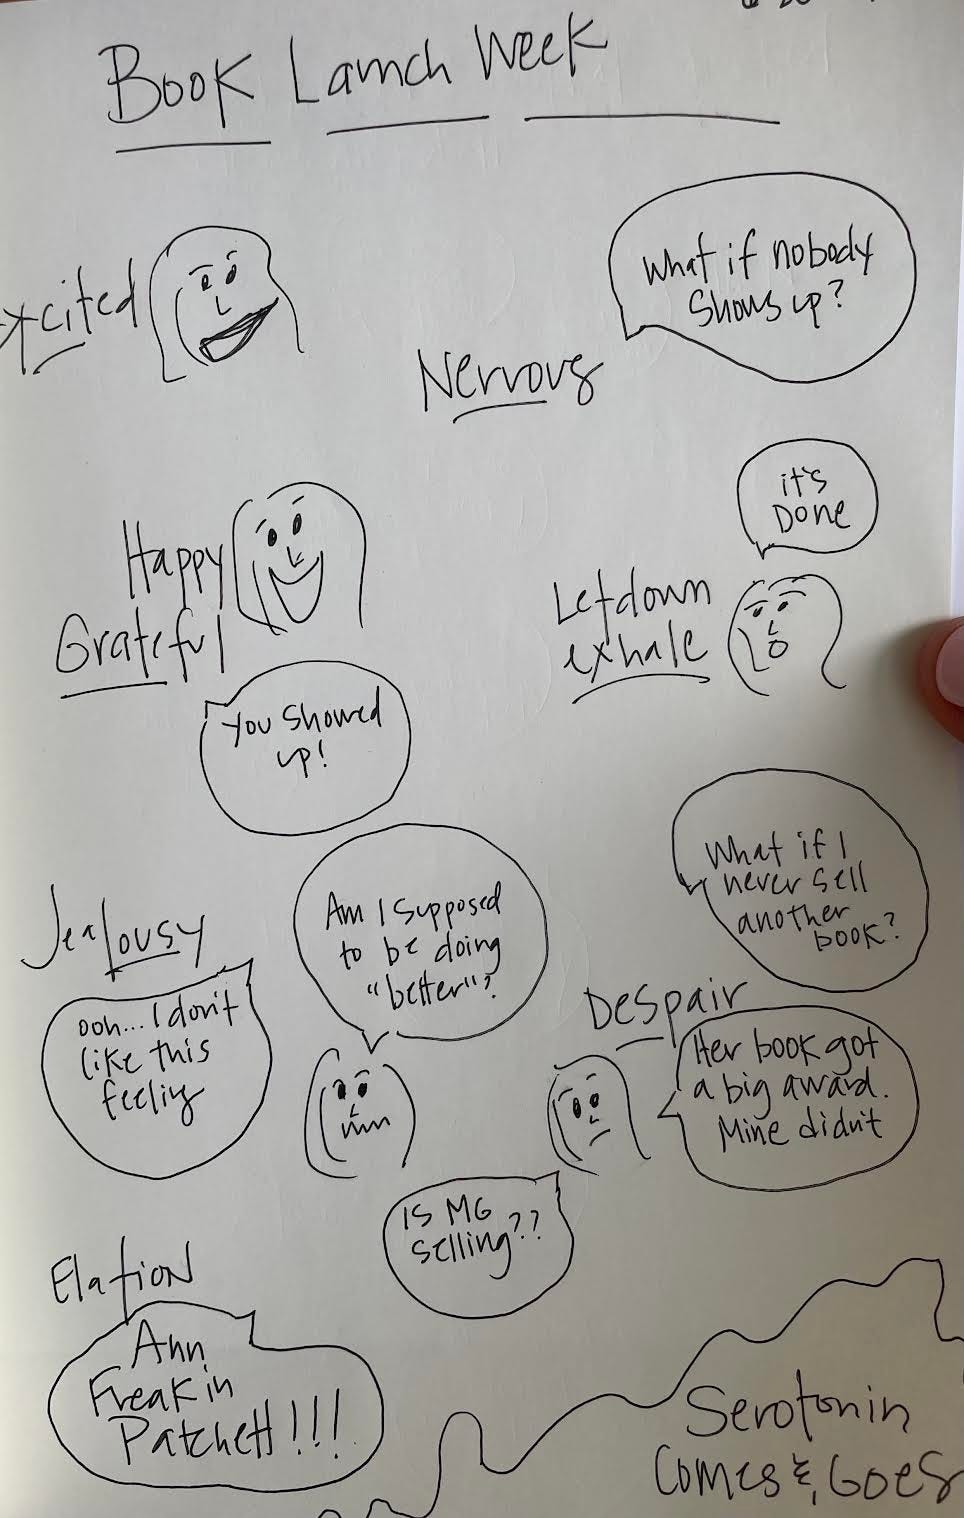 Book Launch Week
xcited
What if nobody
Shows up?
Nervous
it's
Done
Happy
Grateful
Letdown
exhale
You showed
up!
What if I
never sell
another
book?
Jealousy
Am I supposed
to be doing
"better"?
ooh... I don't
like this
feeling
Despair
Her book got
a big award.
Mine didn't
Is MG
selling??
Elation
Ann
Freakin
Patchett!!!
Serotonin
Comes &, Goes